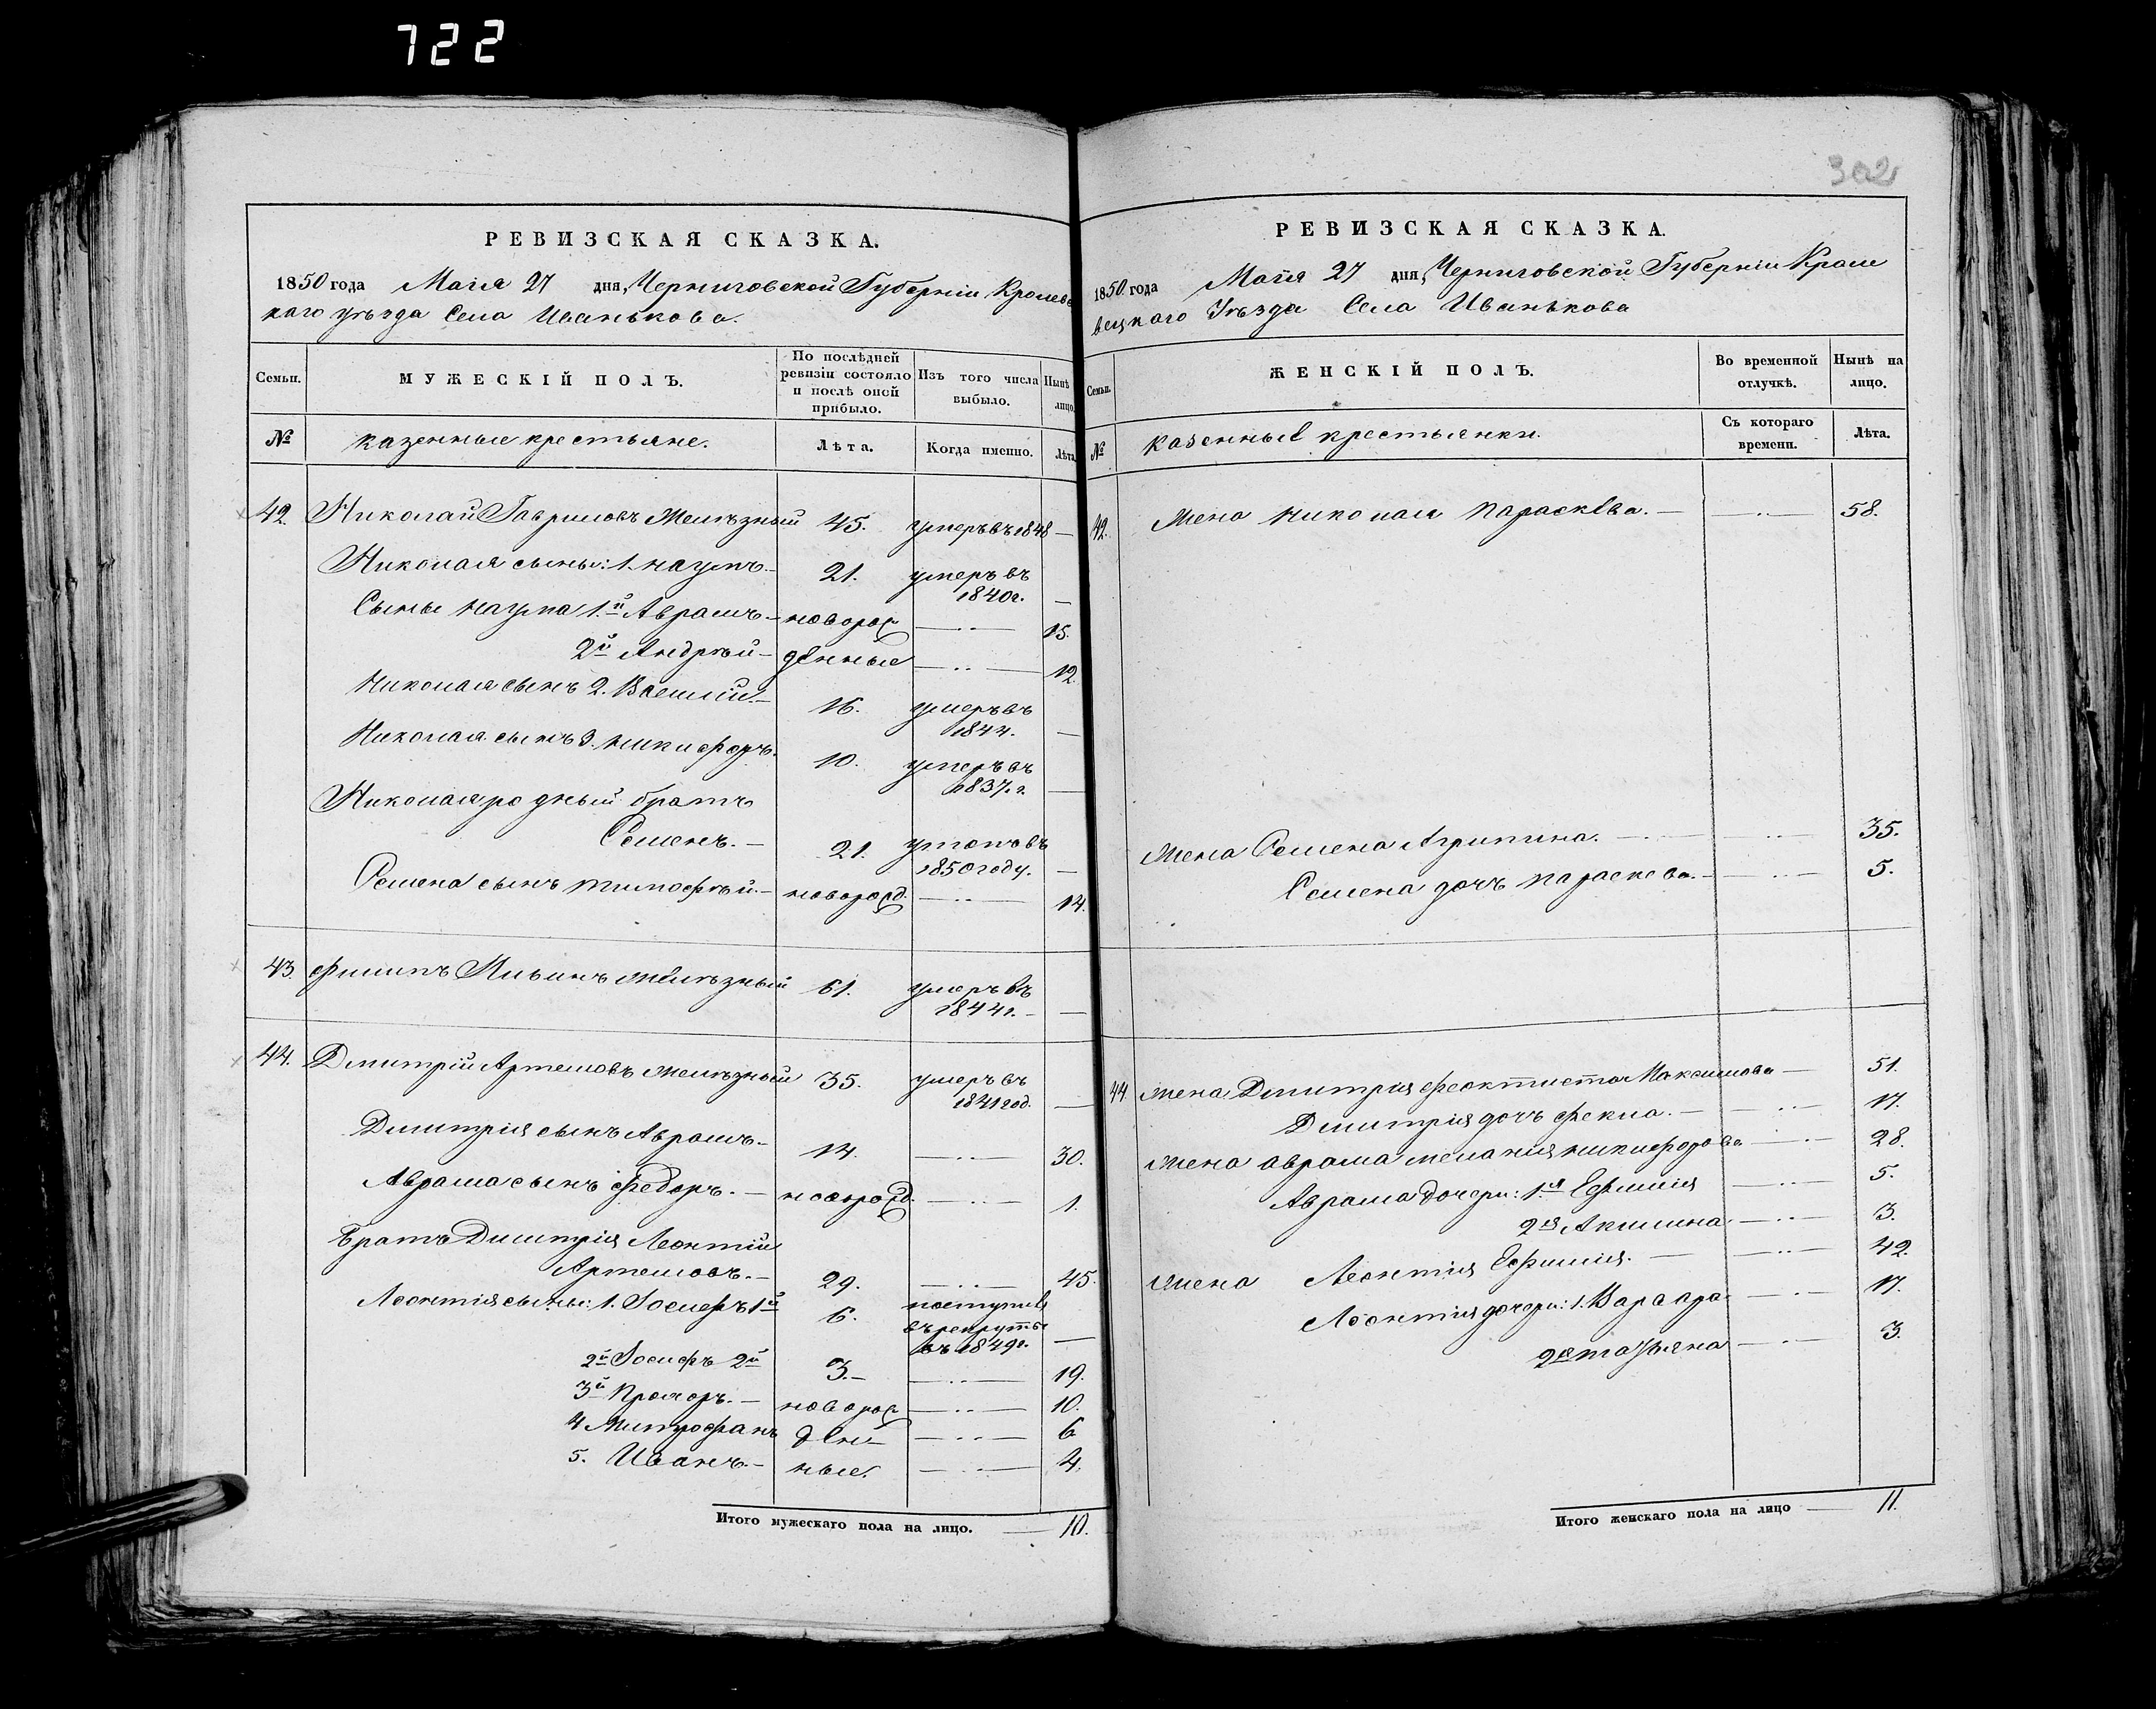 722
РЕВИЗСКАЯ СКАЗКА.
1850 года Маія 27 дня, Черниговской Губерніи Кролевец
каго уѣзда Села Иванькова.
Семьи. МУЖЕСКІЙ ПОЛЪ. По послѣдней ревизіи состояло и послѣ оной прибыло. Изъ того числа выбыло. Нынѣ лицо.
№ казенные крестьяне. Лѣта. Когда именно. Лѣта.
42. Николай Гавриловъ Желѣзный 45. умеръ въ 1848 —
Николая сыны: 1. Наумъ.— 21. умеръ въ 1840 г. —
Сыны Наума 1й Аврамъ— новорож — 15.
2й Андрѣй— денные — 12.
Николая сынъ 2. Василій.— 16. умеръ въ 1844. —
Николая сынъ 3. Никифоръ. 10. умеръ въ 1837. г. —
Николая родный братъ
Семенъ.— 21. утопъ въ 1850 году. —
Семена сынъ Тимофѣй.— новорожд. — 14.
43. Филипъ Ильинъ Желѣзный 61. умеръ въ 1844 г. —
44. Дмитрій Артемовъ Желѣзный 35. умеръ въ 1841 год. —
Дмитрія сынъ Аврамъ— 14. — 30.
Аврама сынъ Федоръ.— новорожд. — 1.
Братъ Дмитрія Леонтій
Артемовъ.— 29. — 45.
Леонтія сыны: 1. Іосифъ 1й 6. поступилъ въ рекруты въ 1849 г. —
2й Іосифъ 2й 3.— — 19.
3й Прохоръ.— новорож — 10.
4 Митрофанъ ден— — 6
5. Иванъ.— ные. — 4.
Итого мужескаго пола на лицо. — 10.
302
РЕВИЗСКАЯ СКАЗКА.
1850 года Маія 27 дня, Черниговской Губерніи Кроле
вецкаго Уѣзда Села Иванькова
Семьи. ЖЕНСКІЙ ПОЛЪ. Во временной отлучкѣ. Нынѣ на лицо.
№ казенные крестьянки. Съ котораго времени. Лѣта.
42. Жена Николая Параскева.— — 58.
Жена Семена Агрипина.— — 35.
Семена дочь Параскева.— — 5.
44. Жена Дмитрія Феоктиста Максимова — 51.
Дмитрія дочь Фекла.— — 17.
Жена Аврама Меланія Никифорова — 28.
Аврама дочери: 1я Ефимія — 5.
2я Акилина.— — 3.
Жена Леонтія Ефимія.— — 42.
Леонтія дочери: 1. Варвара — 17.
2я Татьяна — 3.
Итого женскаго пола на лицо — 11.